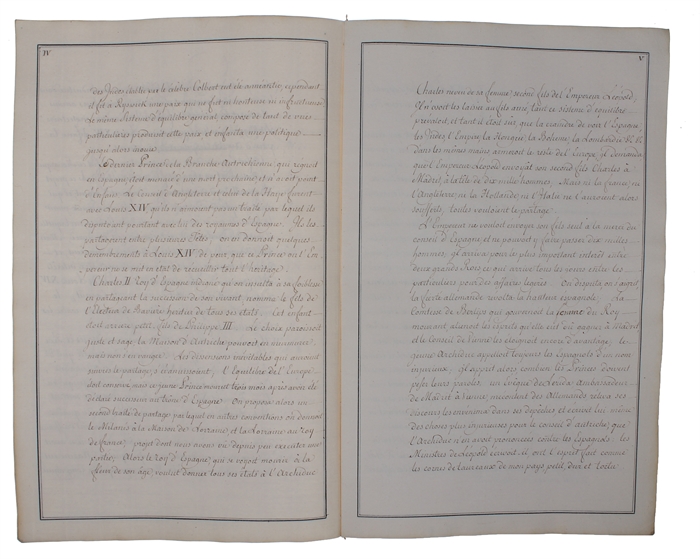 IV
des Indes établie par le célèbre Colbert est de anéantie, cependant
il fit à Ryswick une paix qui ne fut ni honteuse ni infructueuse
Le même Sistème d'équilibre général, composé de tant de vues
particulières produisit cette paix, et enfanta une politique
jusqu'alors inouie
Le dernier Prince de la Branche Autrichienne, qui régnoit
en Espagne étoit menacé d'une mort prochaine et n'avoit point
d'Enfans. Le Conseil d'Angleterre et celui de la Haye firent
avec Louis XIV qu'ils n'aimoient pas un traité par lequel ils
disposoient pourtant avec lui des royaumes d'Espagne. Ils les
partageoient entre plusieurs Têtes; on en donnoit quelques
démembrements à Louis XIV de peur que ce Prince ou l'Em
pereur ne se mit en état de recueillir tout l'héritage.
Charles II Roy d'Espagne indigné qu'on insulta à sa foiblesse
en partageant la succession de son vivant, nomma le fils de
l'Electeur de Bavière héritier de tous ses états. Cet enfant
étoit arrière petit fils de Philippe III. Le choix paroissoit
juste et sage. La Maison d'Autriche pouvoit en murmurer
mais non s'en vanger. Les dissensions inévitables qui auroient
suivi le partage, s'évanouissoient; l'Equilibre de l'Europe
étoit conservé mais ce jeune Prince mourut trois mois après avoir été
déclaré successeur au trône d'Espagne. On proposa alors un
second traité de partage par lequel en autres conventions on donnoit
le Milanès à la Maison de Lorraine et la Lorraine au Roy
de France; projet dont nous avons vu depuis peu exécuter une
partie; Alors le Roy d'Espagne qui se voyoit mourir à la
fleur de son âge, voulut donner tous ses états à l'Archiduc
V
Charles neveu de sa femme second fils de l'Empereur Léopold,
Il n'osoit les laisser au fils ainé, tant ce sistème d'équilibre
prévaloit, et tant il étoit sûr que la crainte de voir l'Espagne,
les Indes, l'Empire, la Hongrie, la Bohème, la Lombardie
dans les mêmes mains armeroit le reste de l'Europe; il demanda
que l'Empereur Léopold envoyât son second fils Charles à
Madrid, à la tête de dix mille hommes; Mais ni la france, ni
l'Angleterre, ni la Hollande, ni l'Italie ne l'auroient alors
souffert, toutes vouloient le partage.
L'Empereur ne vouloit envoyer son fils seul à la merci du
conseil d'Espagne et ne pouvoit y faire passer dix mille
hommes; Il arriva pour le plus important intérêt entre
deux grands Rois ce qui arrive tous les jours entre les
particuliers pour des affaires légères. On disputa on s'aigrit
la fierté allemande révolta la hauteur espagnole. La
Comtesse de Berlips qui gouvernoit la femme du Roy
mourant, aliénoit les esprits qu'elle eût dû gagner à Madrid
et le Conseil de Vienne les éloignoit encore d'avantage; Le
jeune Archiduc appelloit toujours les Espagnols d'un nom
injurieux; Il apprit alors combien les Princes doivent
peser leurs paroles. Un Evêque de Lerida Ambassadeur
de Madrid à Vienne, mécontent des Allemands releva ses
discours les envenima dans ses dépêches et écrivit lui même
des choses plus injurieuses pour le conseil d'autriche que
l'Archiduc n'en avoit prononcées contre les Espagnols. Les
Ministres de Léopold écrivoit-il, ont l'esprit fait comme
les cornes de taureaux de mon pays, petit, dur et tortu.